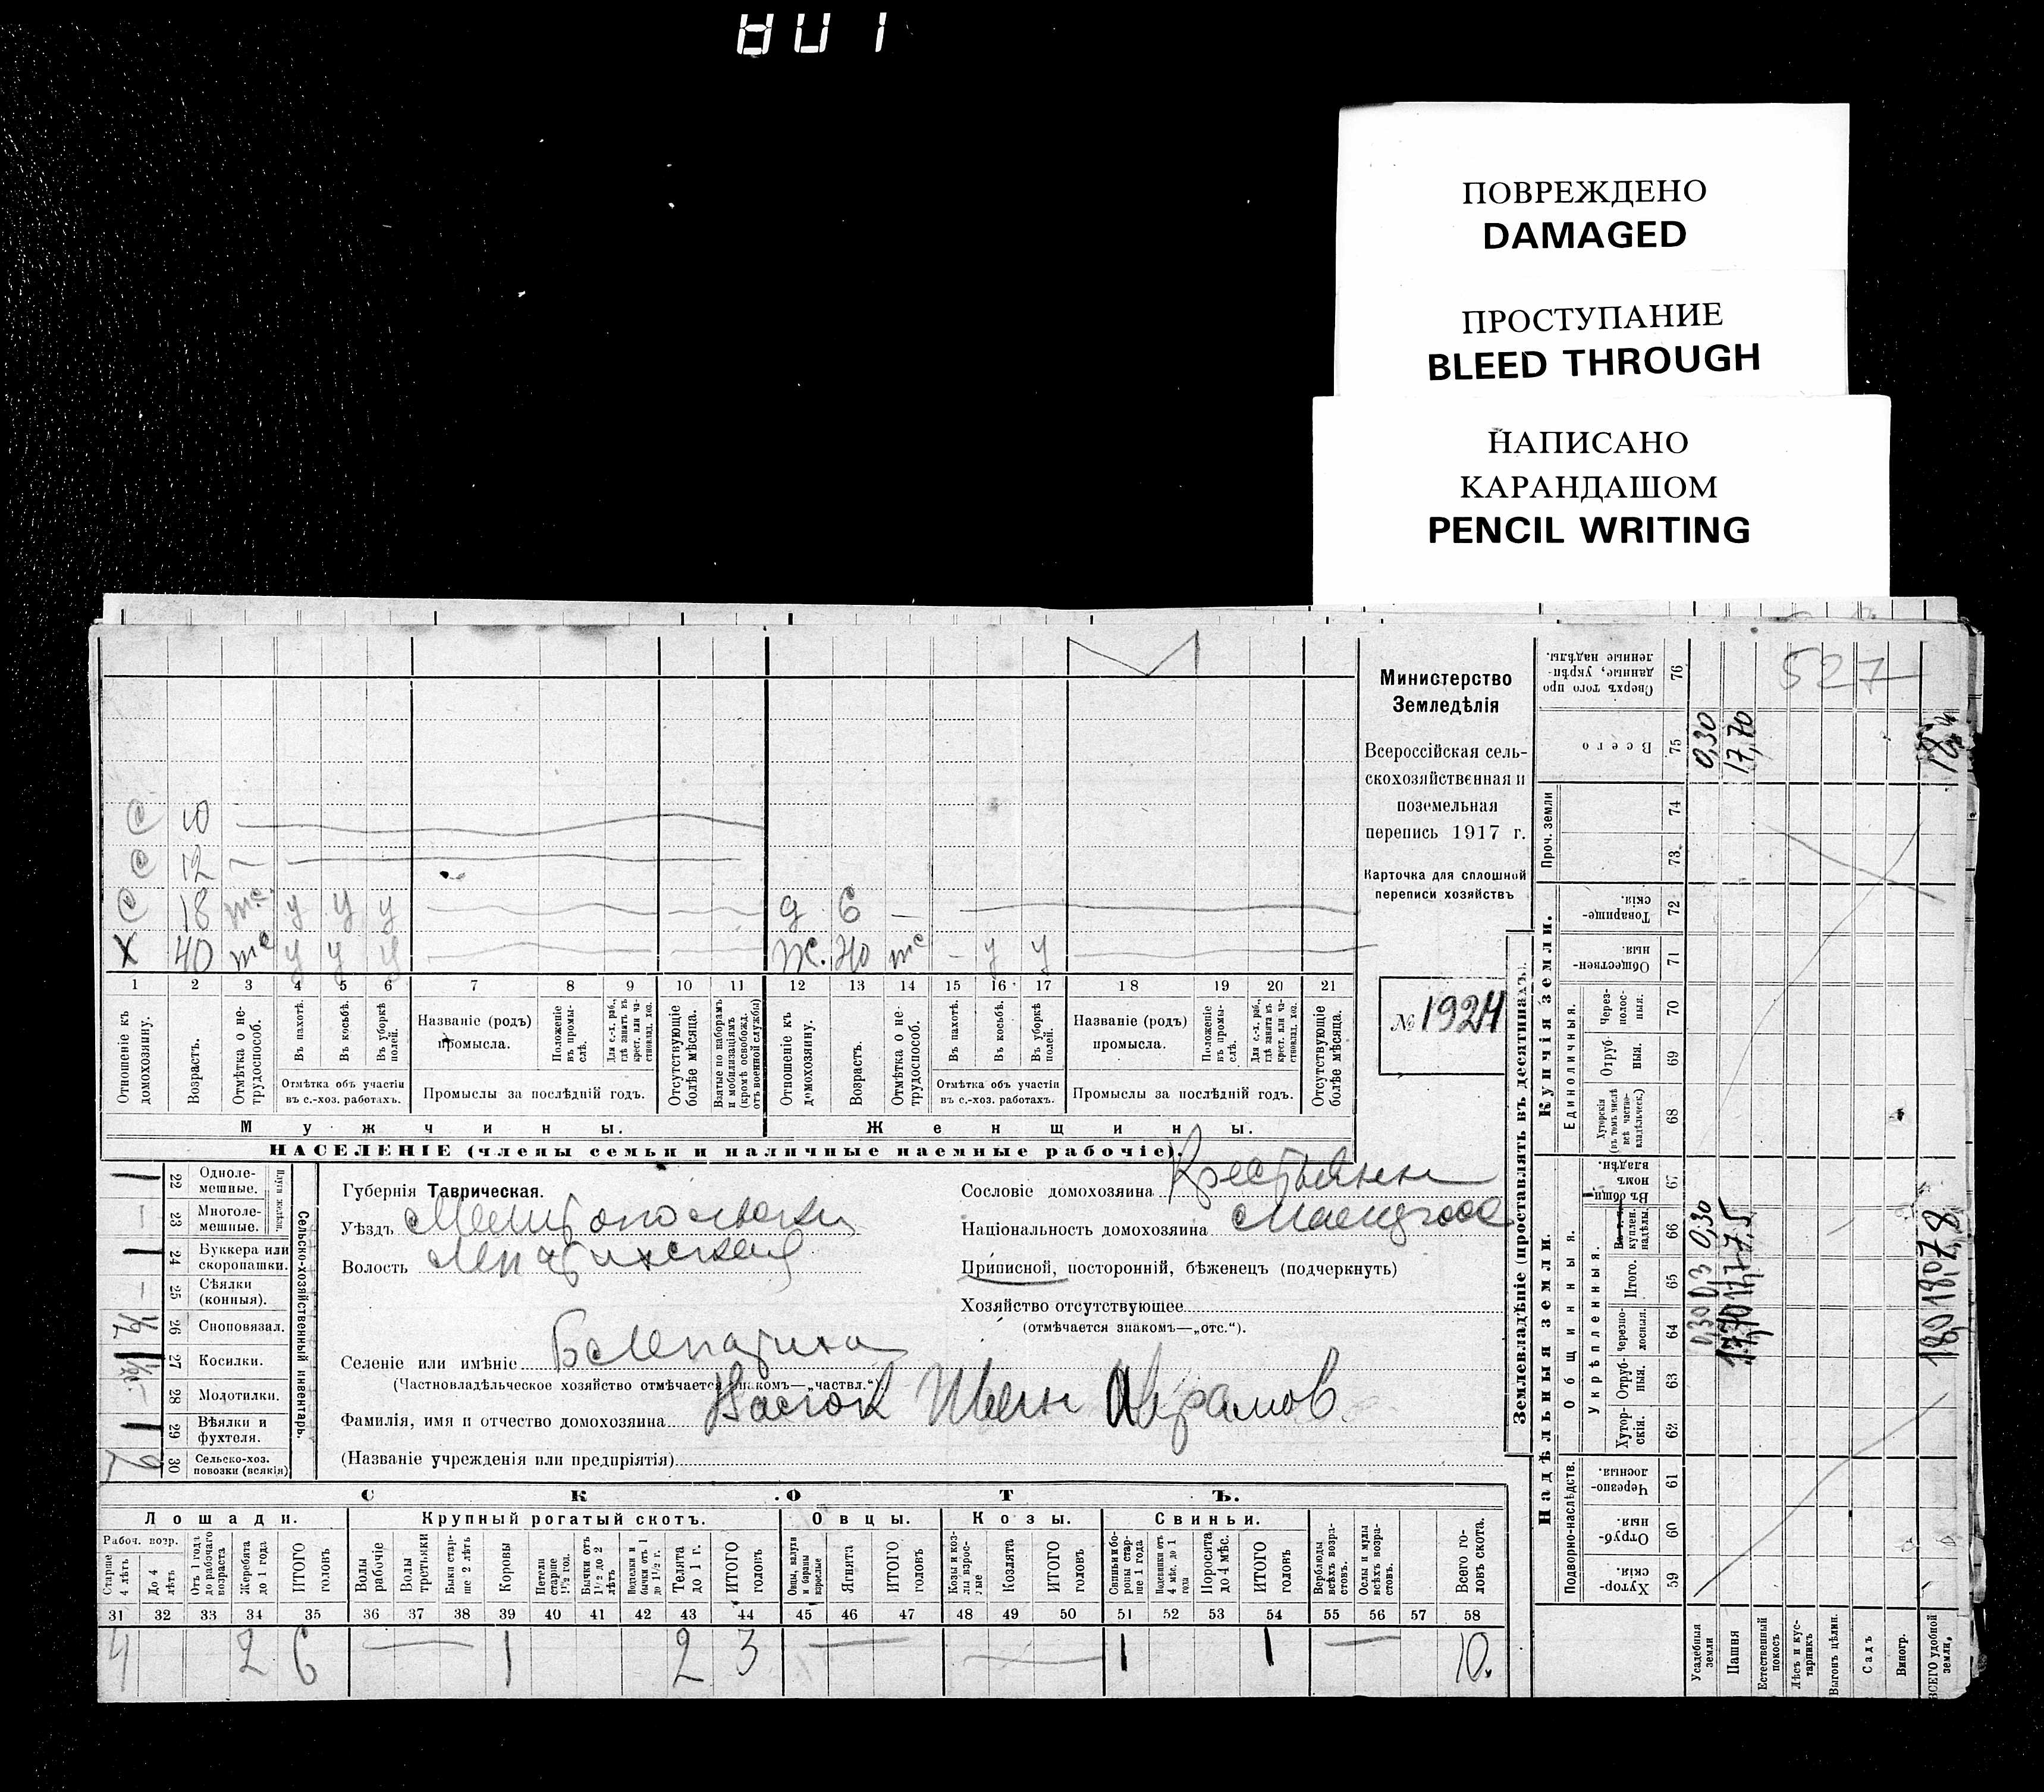 ПОВРЕЖДЕНО
DAMAGED
ПРОСТУПАНИЕ
BLEED THROUGH
НАПИСАНО
КАРАНДАШОМ
PENCIL WRITING
Министерство
Земледѣлія
Всероссійская сель-
скохозяйственная и
поземельная
перепись 1917 г.
Карточка для сплошной
переписи хозяйствъ
№ 1924
С 10
С 12 —
С 18 у у у
Д 6 —
Х 40 у у у
Ж. 40 — у у
1 2 3 4 5 6 7 8 9 10 11 12 13 14 15 16 17 18 19 20 21
Отношеніе къ домохозяину.
Возрастъ.
Отмѣтка о не-трудоспособ.
Въ пахотѣ.
Въ косьбѣ.
Въ уборкѣ полей.
Отмѣтка объ участіи
въ с.-хоз. работахъ.
Названіе (родъ)
промысла.
Положеніе въ промы-слѣ.
Для с.-х. раб., гдѣ занятъ въ крест. или ча-стновлад. хоз.
Промыслы за послѣдній годъ.
Отсутствующіе болѣе мѣсяца.
Взятые по наборамъ и мобилизаціямъ (кромѣ освобожд. отъ военной службы)
Отношеніе къ домохозяину.
Возрастъ.
Отмѣтка о не-трудоспособ.
Въ пахотѣ.
Въ косьбѣ.
Въ уборкѣ полей.
Отмѣтка объ участіи
въ с.-хоз. работахъ.
Названіе (родъ)
промысла.
Положеніе въ промы-слѣ.
Для с.-х. раб., гдѣ занятъ въ крест. или ча-стновлад. хоз.
Промыслы за послѣдній годъ.
Отсутствующіе болѣе мѣсяца.
Мужчины.
Женщины.
НАСЕЛЕНІЕ (члены семьи и наличные наемные рабочіе).
Сельско-хозяйственный инвентарь.
22 Одноле-мешные.
23 Многоле-мешные.
24 Буккера или скоропашки.
25 Сѣялки (конныя).
26 Сноповязал.
27 Косилки.
28 Молотилки.
29 Вѣялки и фухтеля.
30 Сельско-хоз. повозки (всякія)
Губернія Таврическая.
Уѣздъ Мелитопольский
Волость
Селеніе или имѣніе
(Частновладѣльческое хозяйство отмѣчается знакомъ—„частвл.“)
Фамилія, имя и отчество домохозяина
(Названіе учрежденія или предпріятія)
Сословіе домохозяина
Національность домохозяина
Приписной, посторонній, бѣженецъ (подчеркнуть)
Хозяйство отсутствующее
(отмѣчается знакомъ—„отс.“).
СКОТЪ.
Лошади.
Крупный рогатый скотъ.
Овцы.
Козы.
Свиньи.
Рабоч. возр.
Старше 4 лѣтъ
До 4 лѣтъ
Отъ 1 года до рабочаго возраста
Жеребята до 1 года
ИТОГО головъ
Волы рабочіе
Волы третьяки
Быки стар-ше 2 лѣтъ
Коровы
Нетели старше 1½ год.
Бычки отъ 1½ до 2 лѣтъ
Телята до 1 г.
ИТОГО головъ
Овцы, валухи и бараны взрослые
Ягнята
ИТОГО головъ
Козы и коз-лы взрос-лые
Козлята
ИТОГО головъ
Свиньи и бо-ровы стар-ше 1 года
Подсвинки отъ 4 мѣс. до 1 года
Поросята до 4 мѣс.
ИТОГО головъ
Верблюды всѣхъ возра-стовъ.
Ослы и мулы всѣхъ возра-стовъ.
Всего го-ловъ скота.
31 32 33 34 35 36 37 38 39 40 41 42 43 44 45 46 47 48 49 50 51 52 53 54 55 56 57 58
4 2 6 1 2 3 1 1 10.
Землевладѣніе (проставлять въ десятинахъ).
Надѣльныя земли.
Купчія земли.
Подворно-наслѣдств.
Общинныя.
Укрѣпленныя.
Единоличныя.
Проч. земли
Хутор-скія. 59
Отруб-ныя. 60
Черезпо-лосныя. 61
Хутор-скія. 62
Отруб-ныя. 63
Черезпо-лосныя. 64
Итого. 65
куплен. надѣлы. 66
Въ общин-номъ владѣн. 67
Хуторскія (въ томъ числѣ всѣ частно-владѣльческ.) 68
Отруб-ныя. 69
Через-полос-ныя. 70
Обществен-ныя. 71
Товарище-скія. 72
73
74
Всего 75
Сверхъ того про-данные, укрѣп-ленные надѣлы. 76
Усадебныя земли
Пашня
Естественный покосъ
Лѣсъ и кус-тарникъ
Выгонъ цѣлин.
Садъ
Виногр.
ВСЕГО удобной земли.
0,30
17,70
527